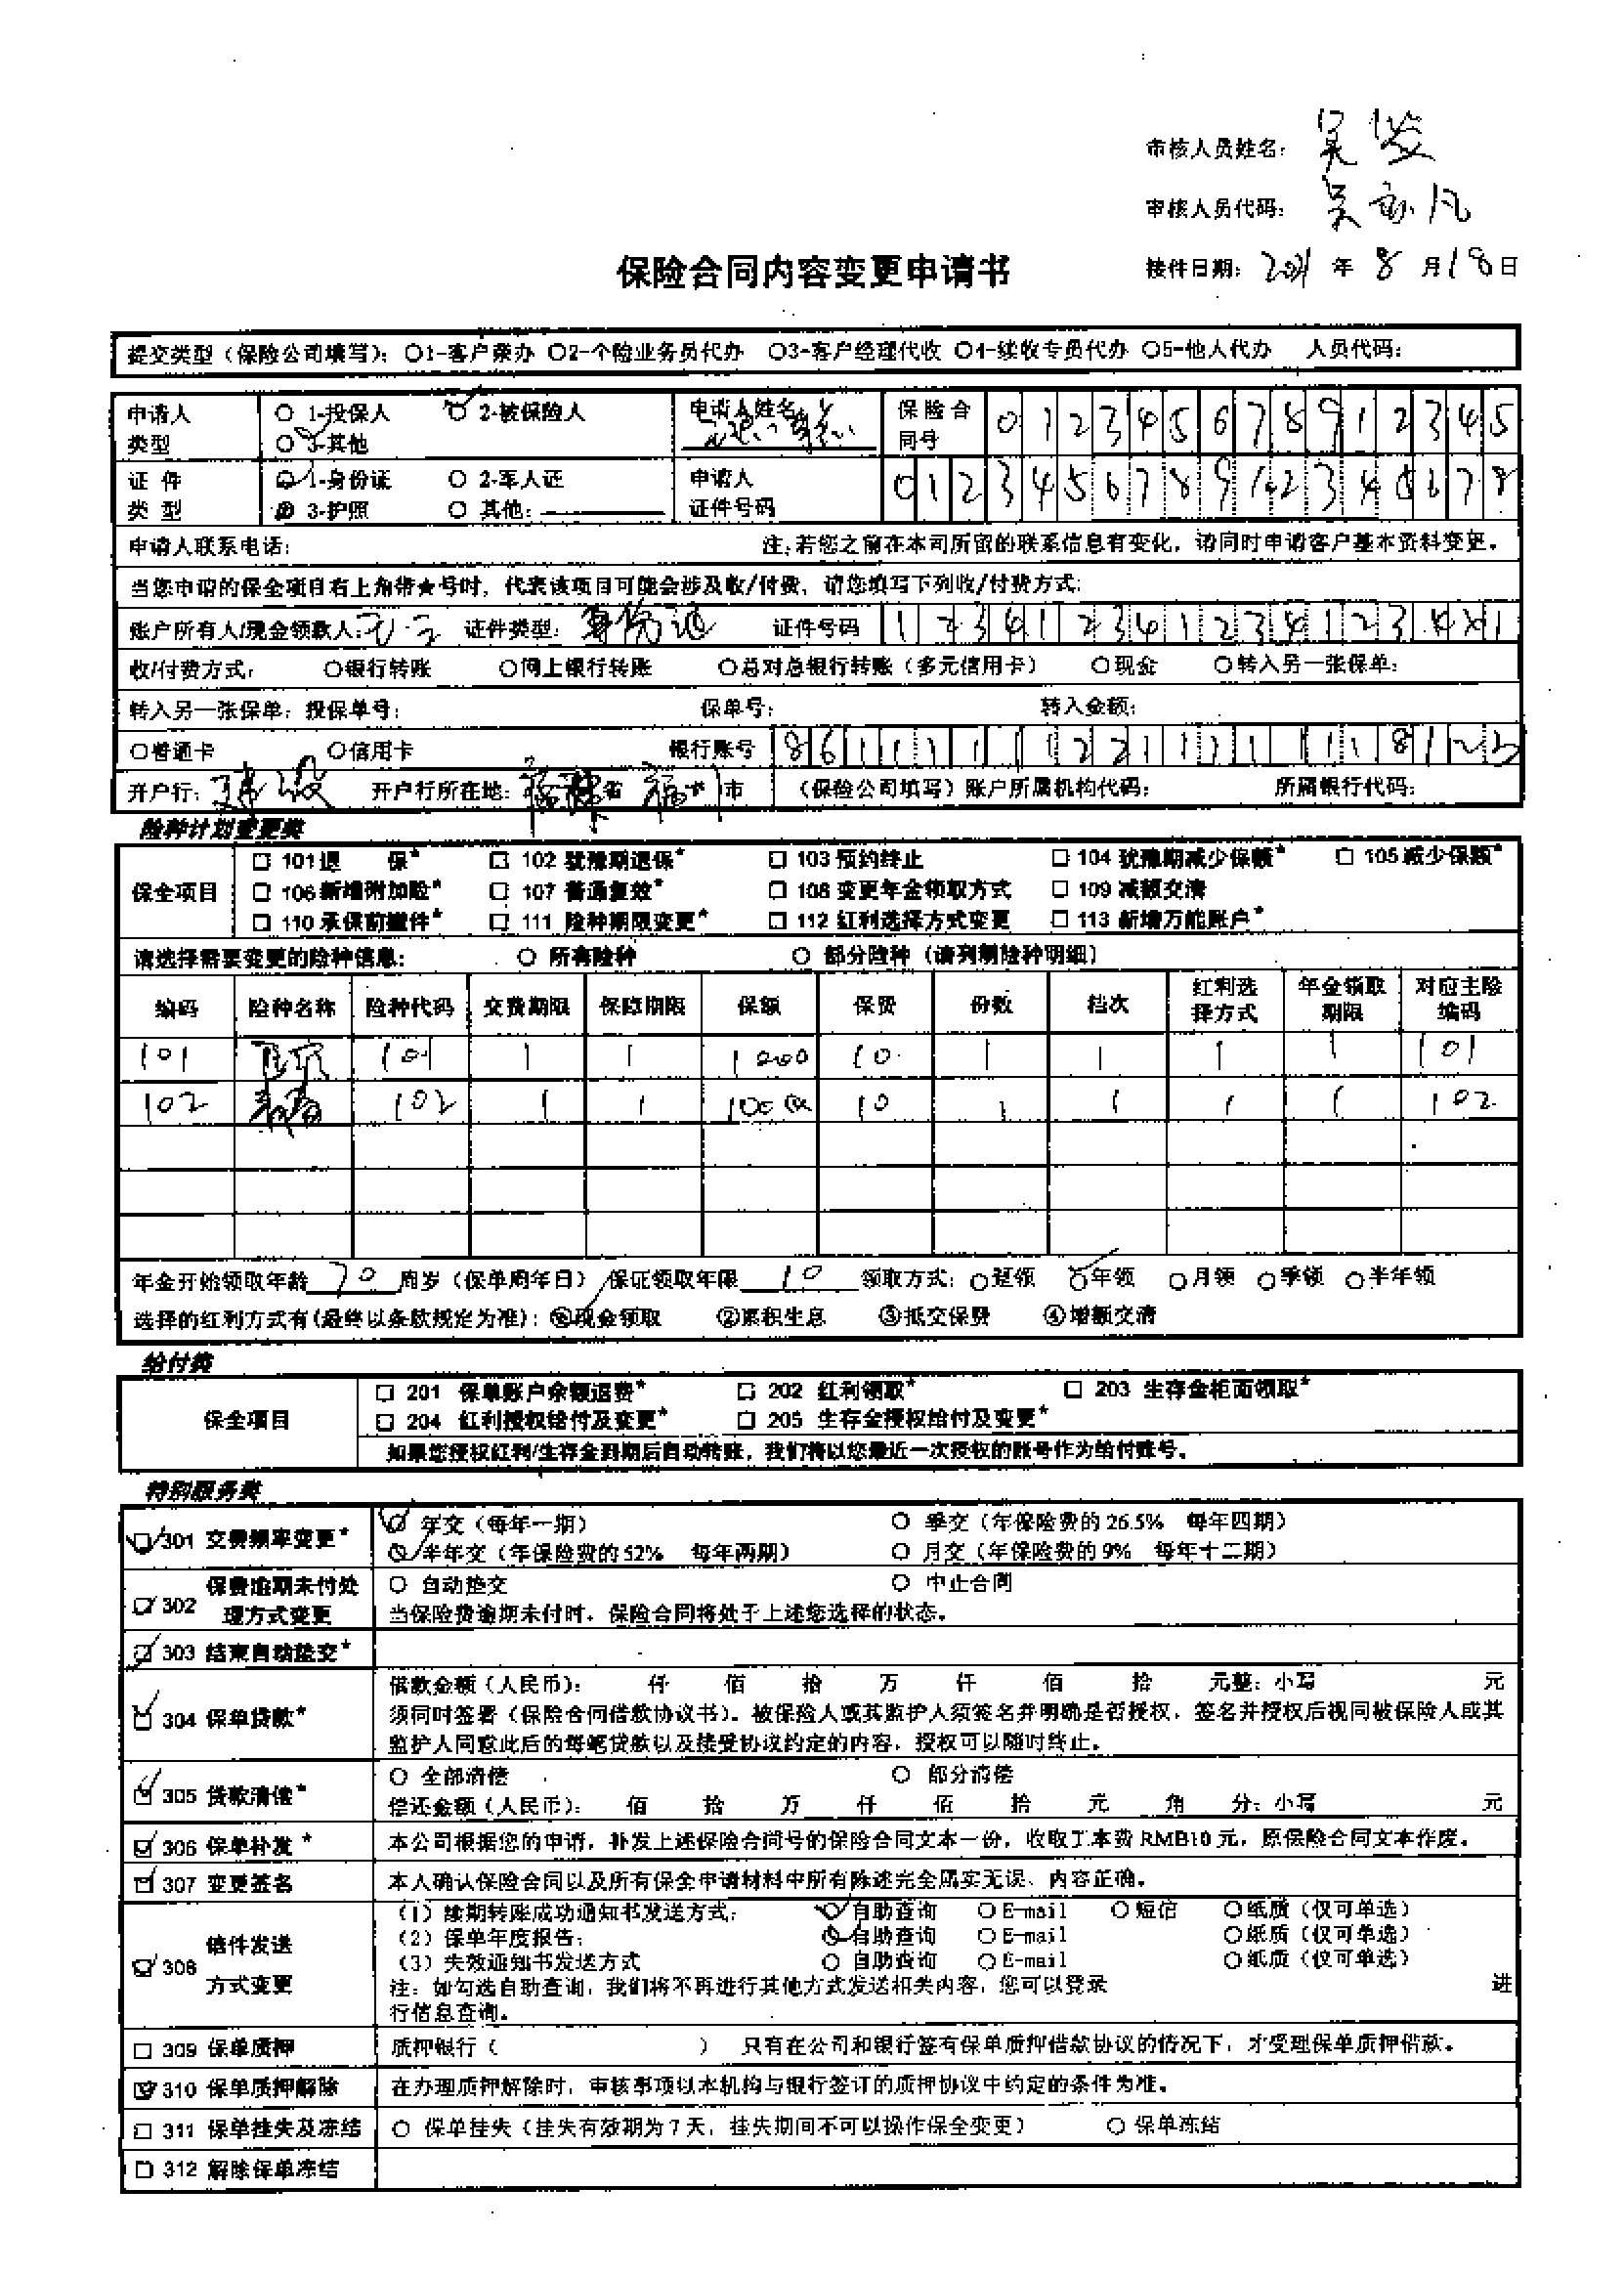 审核人员姓名: 吴
审核人员代码: 吴亦凡
保险合同内容变更申请书
接件日期: 2021 年 8 月 18 日
提交类型（保险公司填写）: ○1-客户亲办 ○2-个险业务员代办 ○3-客户经理代收 ○4-续收专员代办 ○5-他人代办 人员代码:
申请人类型 ○ 1-投保人 ○ 2-被保险人 ○ 3-其他 申请人姓名 保险合同号 0 1 2 3 4 5 6 7 8 9 1 2 3 4 5
证件类型 ○ 1-身份证 ○ 2-军人证 3-护照 ○ 其他: 申请人证件号码 0 1 2 3 4 5 6 7 8 9 1 2 3 4 5 6 7 8
申请人联系电话: 注:若您之前在本司所留的联系信息有变化，请同时申请客户基本资料变更。
当您申请的保全项目右上角带★号时，代表该项目可能会涉及收/付费，请您填写下列收/付费方式:
账户所有人/现金领款人: 证件类型: 身份证 证件号码 1 2 3 4 1 2 3 4 1 2 3 4 1 2 3 4 X 1
收/付费方式: ○银行转账 ○网上银行转账 ○总对总银行转账（多元信用卡） ○现金 ○转入另一张保单:
转入另一张保单: 投保单号: 保单号: 转入金额:
○普通卡 ○信用卡 银行账号 8 6 1 1 1 1 1 1 2 2 1 1 1 1 1 1 1 8 1 2
开户行: 建设 开户行所在地: 福建 省 福州 市 （保险公司填写）账户所属机构代码: 所属银行代码:
险种计划变更类
保全项目 □ 101 退 保* □ 102 犹豫期退保* □ 103 预约终止 □ 104 犹豫期减少保额* □ 105 减少保额*
□ 106 新增附加险* □ 107 普通复效* □ 108 变更年金领取方式 □ 109 减额交清
□ 110 承保前撤件* □ 111 险种期限变更* □ 112 红利选择方式变更 □ 113 新增万能账户*
请选择需要变更的险种信息: ○ 所有险种 ○ 部分险种（请列明险种明细）
编码 险种名称 险种代码 交费期限 保障期限 保额 保费 份数 档次 红利选择方式 年金领取期限 对应主险编码
101 101 1 1 1000 10 1 1 1 1 101
102 102 1 1 1000 10 1 1 1 1 102
年金开始领取年龄 70 周岁（保单周年日） 保证领取年限 10 领取方式: ○趸领 ○年领 ○月领 ○季领 ○半年领
选择的红利方式有(最终以条款规定为准): ①现金领取 ②累积生息 ③抵交保费 ④增额交清
给付类
保全项目 □ 201 保单账户余额退费* □ 202 红利领取* □ 203 生存金柜面领取*
□ 204 红利授权给付及变更* □ 205 生存金授权给付及变更*
如果您授权红利/生存金到期后自动转账，我们将以您最近一次授权的账号作为给付账号。
特别服务类
301 交费频率变更* 年交（每年一期） ○ 季交（年保险费的 26.5% 每年四期）
半年交（年保险费的 52% 每年两期） ○ 月交（年保险费的 9% 每年十二期）
302 保费逾期未付处理方式变更 ○ 自动垫交 ○ 中止合同
当保险费逾期未付时，保险合同将处于上述您选择的状态。
303 结束自动垫交*
304 保单贷款* 借款金额（人民币）: 仟 佰 拾 万 仟 佰 拾 元整: 小写 元
须同时签署（保险合同借款协议书）。被保险人或其监护人须签名并明确是否授权，签名并授权后视同被保险人或其
监护人同意此后的每笔贷款以及接受协议约定的内容，授权可以随时终止。
305 贷款清偿* ○ 全部清偿 ○ 部分清偿
偿还金额（人民币）: 佰 拾 万 仟 佰 拾 元 角 分: 小写 元
306 保单补发 * 本公司根据您的申请，补发上述保险合同号的保险合同文本一份，收取工本费 RMB10 元，原保险合同文本作废。
307 变更签名 本人确认保险合同以及所有保全申请材料中所有陈述完全属实无误、内容正确。
308 信件发送方式变更 （1）续期转账成功通知书发送方式: 自助查询 ○ E-mail ○ 短信 ○纸质（仅可单选）
（2）保单年度报告: 自助查询 ○ E-mail ○纸质（仅可单选）
（3）失效通知书发送方式 ○ 自助查询 ○ E-mail ○纸质（仅可单选）
注: 如勾选自助查询，我们将不再进行其他方式发送相关内容，您可以登录 进
行信息查询。
□ 309 保单质押 质押银行（ ） 只有在公司和银行签有保单质押借款协议的情况下，才受理保单质押借款。
310 保单质押解除 在办理质押解除时，审核事项以本机构与银行签订的质押协议中约定的条件为准。
□ 311 保单挂失及冻结 ○ 保单挂失（挂失有效期为 7 天，挂失期间不可以操作保全变更） ○ 保单冻结
□ 312 解除保单冻结